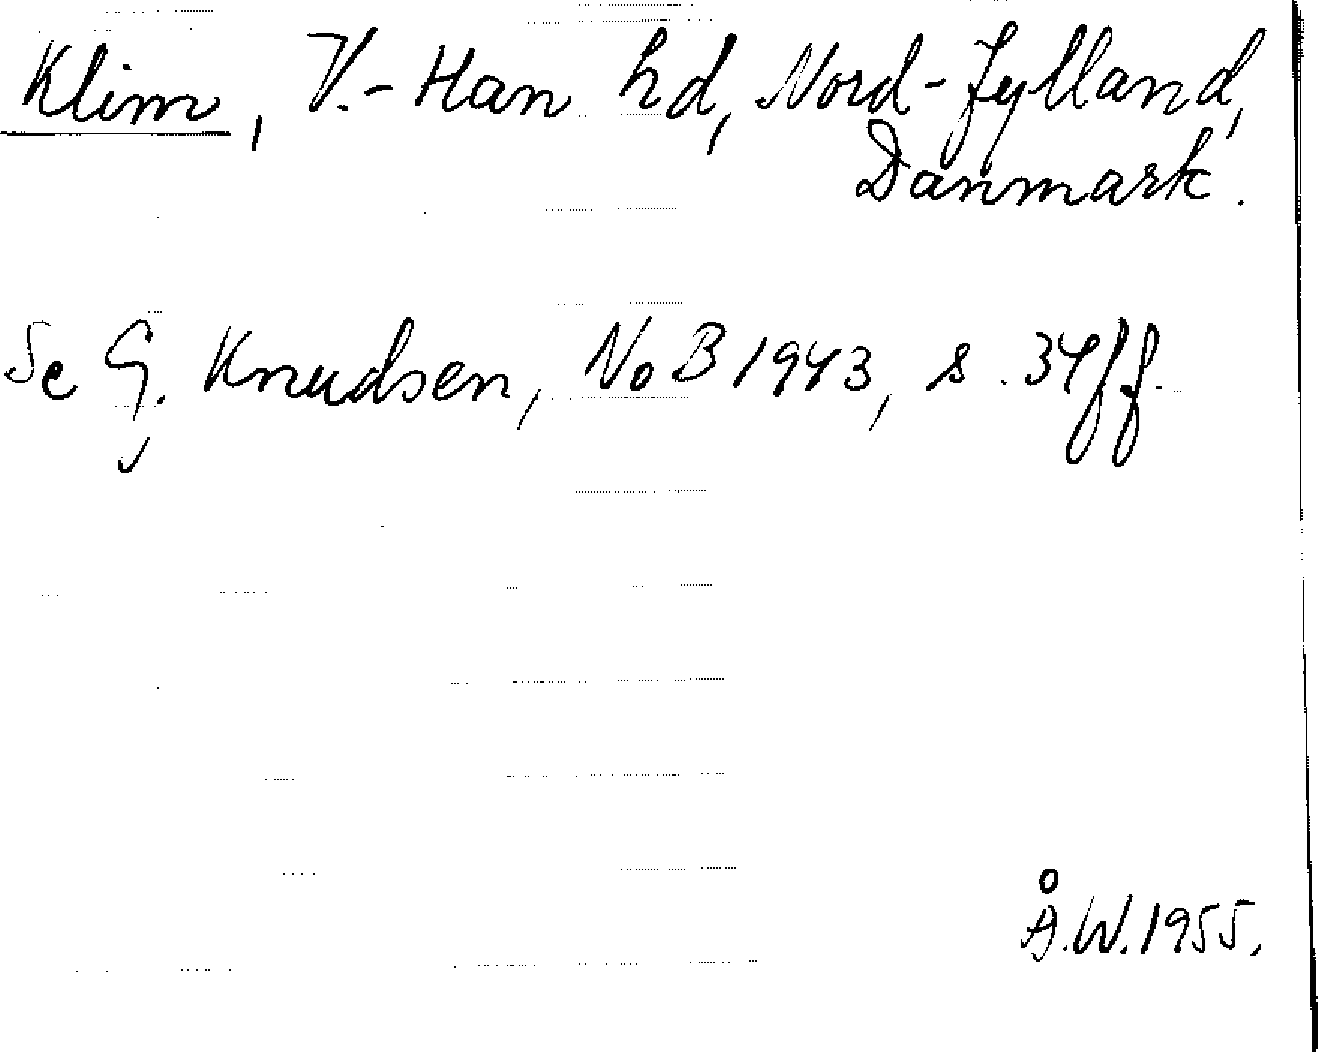 Klim, V.-Han hd, Nord-Jylland,
Danmark.
Se G. Knudsen, NoB 1943, s. 34ff.
Å.W. 1955.